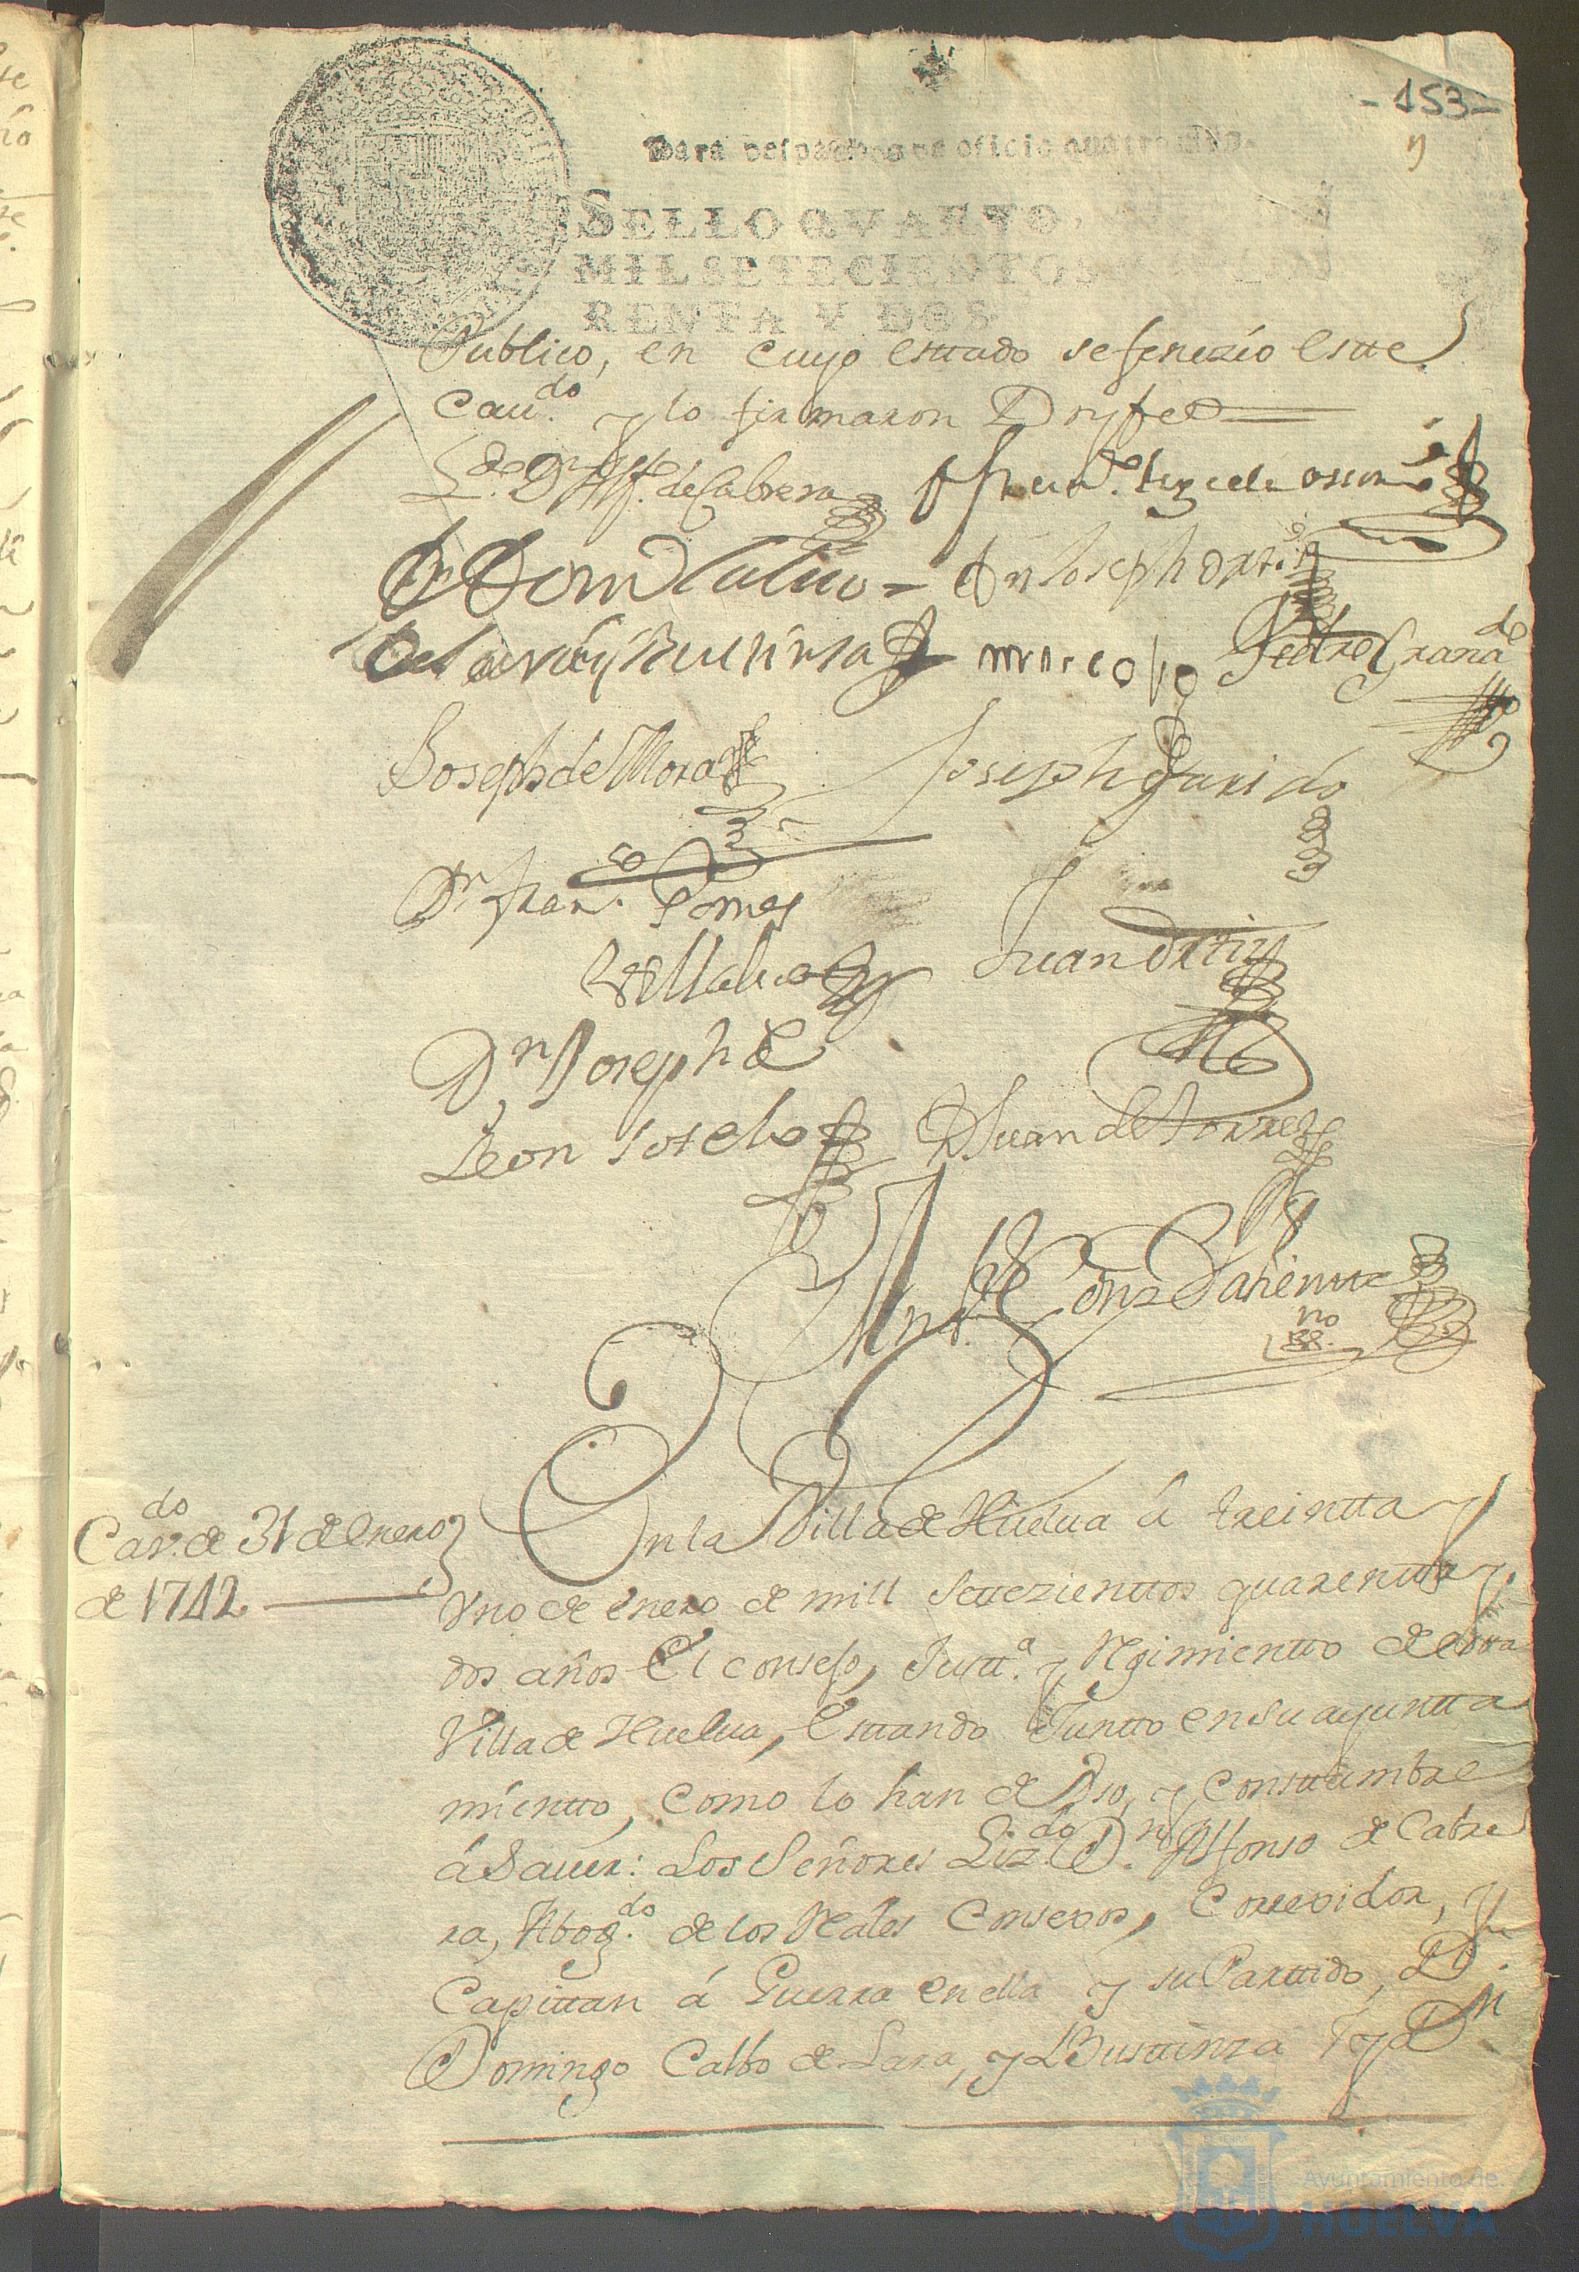 - 153 -
Para despachos de oficio quatro mrs.
SELLO QVARTO,
MIL SETECIENTOS
RENTA Y DOS
Publico, en cuyo esttado se fenezio este
Cau.do y lo firmaron Doyfee
L.do Dn Alf.o de Cabrera
Dn Dom Calbo = Dn Joseph Ortiz
de Lara y Bustinza marcos Pedro Granado
Joseph de Mora Joseph Garrido
Dn Fran.co Gomes
Juan Ortiz
Dn Joseph de
Leon Sotelo D Juan de Torres
Cav.do de 31 de Enero
de 1742
En la Villa de Huelva á treintta y
Uno de enero de mill settezienttos quarentta y
dos años El consejo, Justt.a y Rejimientto de esta
Villa de Huelua, Esttando Juntto en su ayuntta
mientto, como lo han de Uso, y consttumbre
á Sauer: Los Señores Liz.do Dn Alfonso de Cabre
ra, Abog.do de los Reales Consexos, Correxidor, y
Capittan á Guerra en ella y su Parttido, Dn.
Domingo Calbo de Lara, y Busttinza Dn
Ayuntamiento de
HUELVA